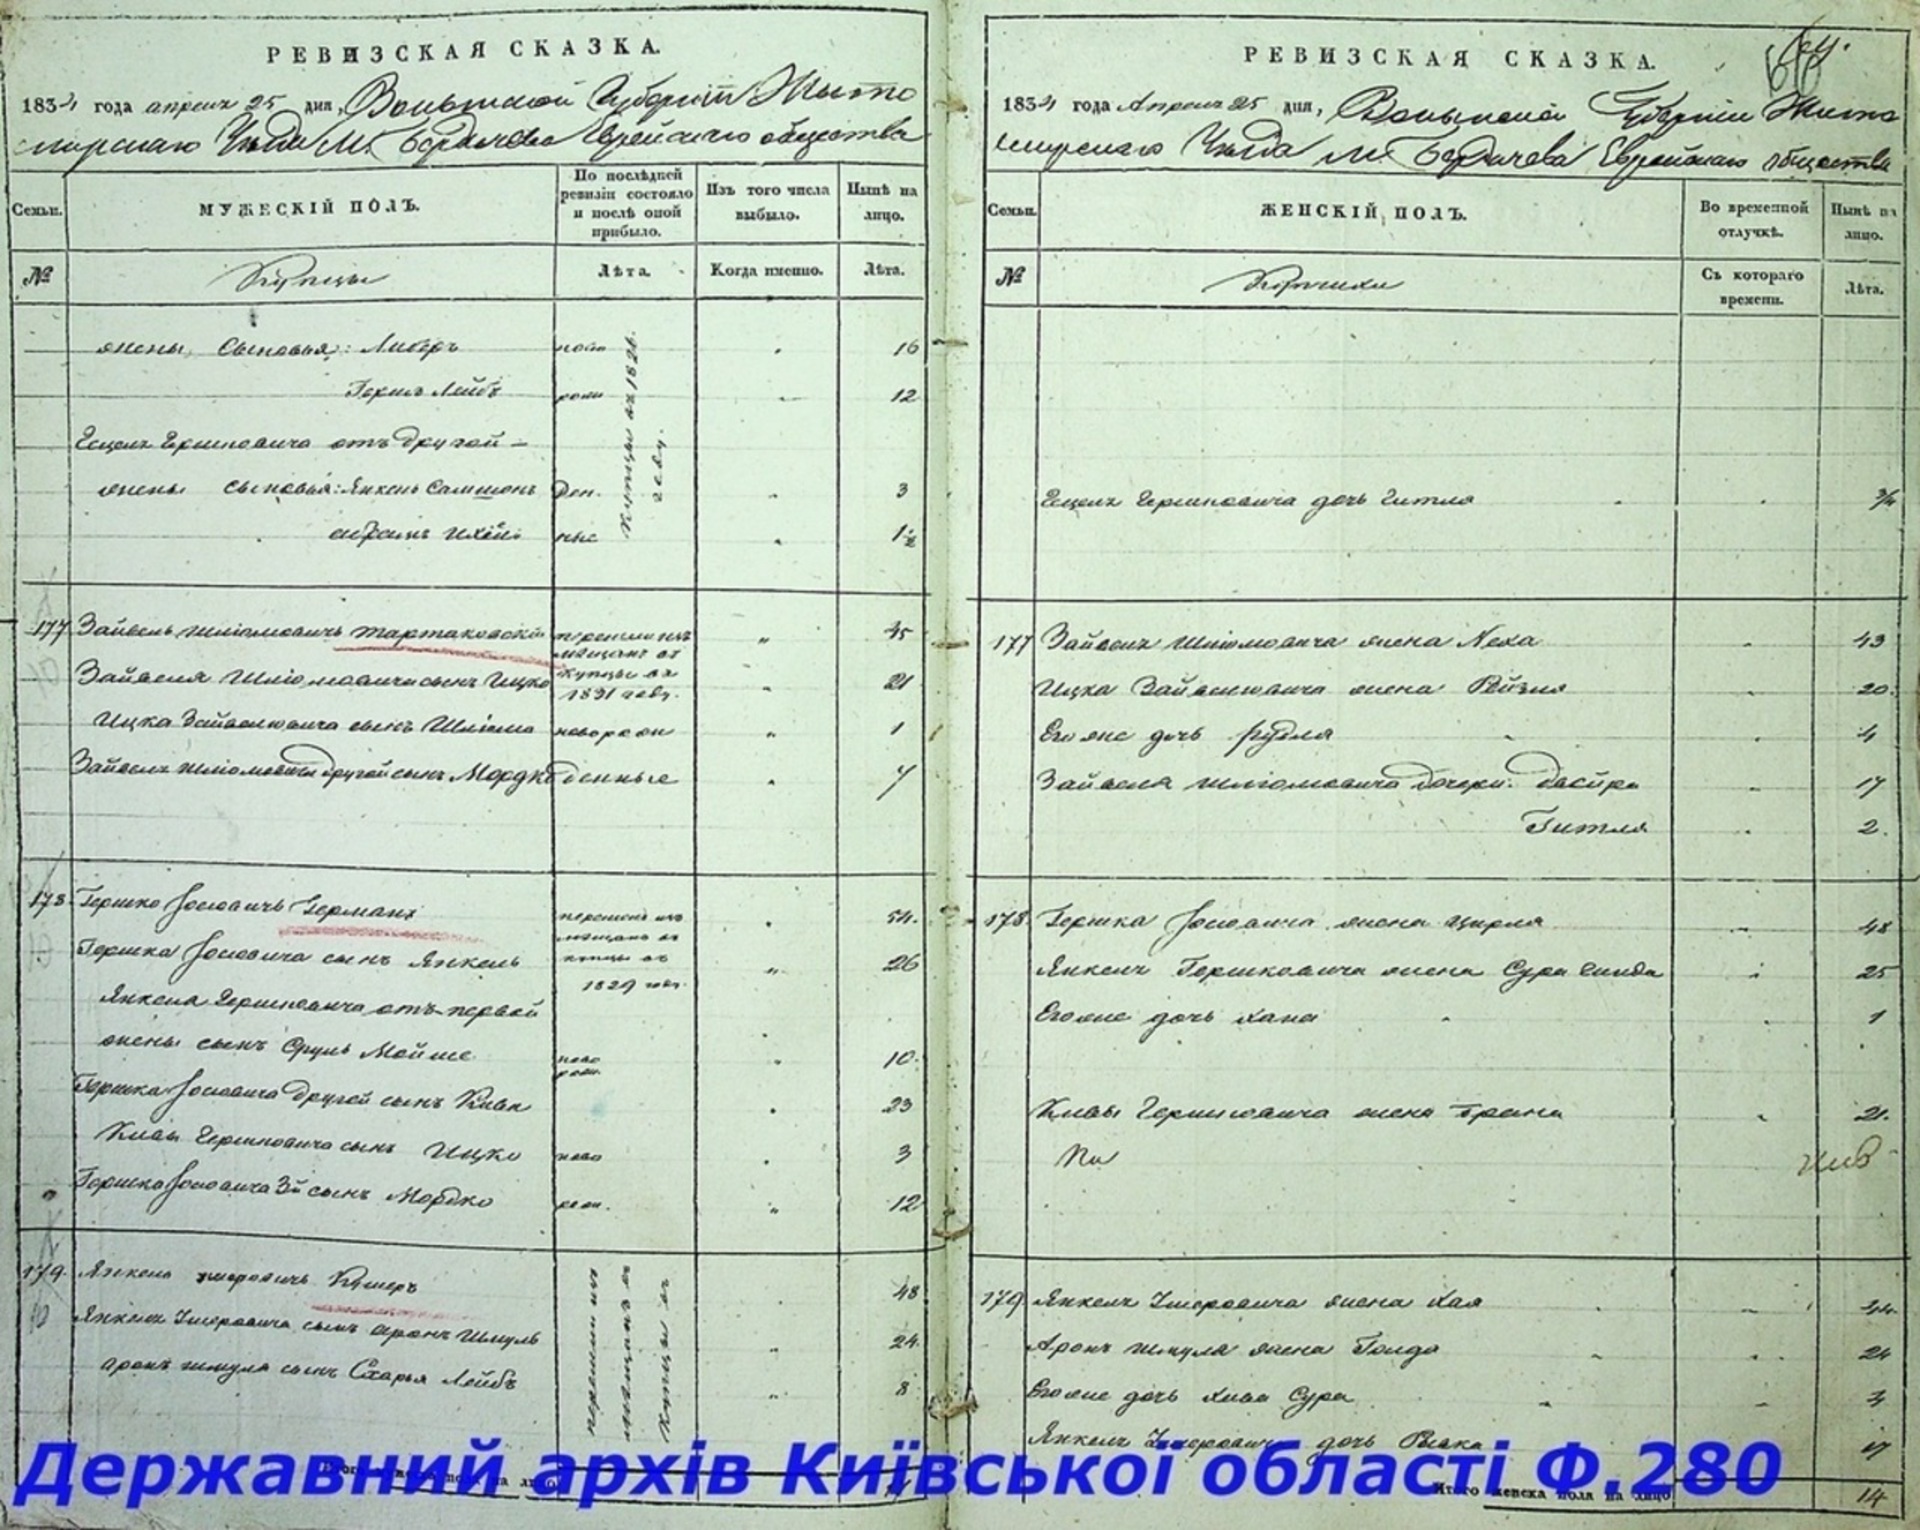 РЕВИЗСКАЯ СКАЗКА.
1834 года апреля 25 дня, Волынской Губернии Жито
мирскаго Уезда М. Бердичева Еврейскаго общества
Семьи.
МУЖЕСКІЙ ПОЛЪ.
По послѣдней ревизіи состояло и послѣ оной прибыло.
Изъ того числа выбыло.
Нынѣ на лицо.
№
Купцы
Лѣта.
Когда именно.
Лѣта.
жены сыновья: Либеръ ново 16
Гершъ Лейбъ рож 12
Гершковича отъ другой
жены сыновья: Янкель Самшонъ ден. 3
ные 1½
Купцы въ 182
177 Зайвель Шліомовичъ Тартаковскій перешли изъ 45
мещанъ въ
Зайвеля Шліомовича сынъ Ицко купцы въ 21
1831 году.
Ицка Зайвелювича сынъ Шліома новорож 1
Зайвеля Шліомовича другой сынъ Мордко денные 7
178 Гершко Іосіовичъ Германъ перешелъ изъ 54.
мещанъ въ
Гершка Іосіовича сынъ Янкель купцы въ 26
1829 году.
Янкеля Гершковича отъ первой
жены сынъ Сруль Мойше ново рож. 10.
Гершка Іосіовича другой сынъ Кива 23
Кивы Гершковича сынъ Ицко ново 3
Гершка Іосіовича 3й сынъ Мордко рож. 12
179. Янкель Кушеръ 48
Янкеля сынъ Аронъ Шмуль 24.
Аронъ Шмуля сынъ Схарья Лейбъ 8
перешли изъ
мещанъ въ
Купцы въ
РЕВИЗСКАЯ СКАЗКА.
1834 года Апреля 25 дня, Волынской Губерніи Жито
мирскаго Уезда М. Бердичева Еврейскаго общества
Семьи.
ЖЕНСКІЙ ПОЛЪ.
Во временной отлучкѣ.
Нынѣ на лицо.
№
Купчихи
Съ котораго времени.
Лѣта.
Гершковича дочь Гитля
177 Зайвеля Шліомовича жена Неха 43
Ицка Зайвелювича жена Рейзля 20.
Его же дочь Рудля 4
Зайвеля Шліомовича дочери: Басйра 17
Гитля 2.
178. Гершка Іосіовича жена Цирля 48
Янкеля Гершковича жена Сура Синда 25
Его же дочь Хана 1
Кивы Гершковича жена Брана 21.
179 Янкеля жена Хая 44.
Аронъ Шмуля жена Голда 24
Его же дочь Хива Сура 4
Янкеля дочь Ривка 17
Итого женска пола на лицо 14
Державний архів Київської області Ф.280